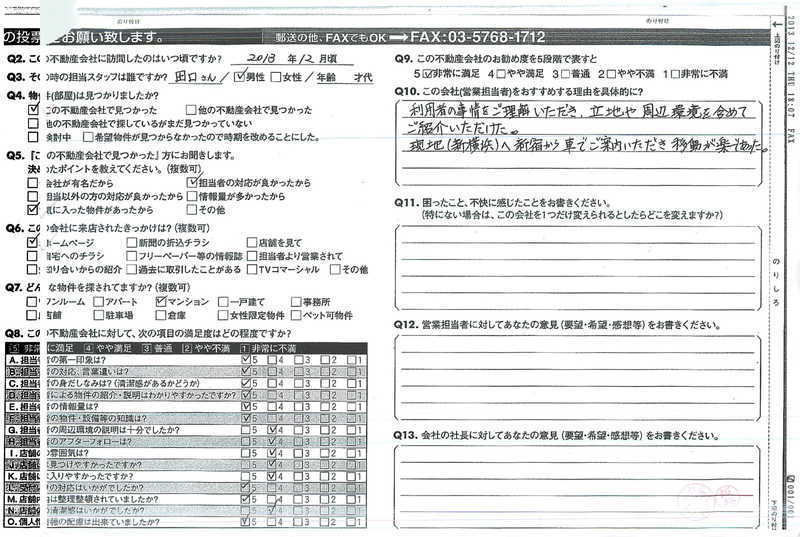 のり付け
のり付け
の投票 をお願い致します。 郵送の他、FAXでもOK ➡FAX:03-5768-1712
Q2. この不動産会社に訪問したのはいつ頃ですか? 2013年12月頃
Q3. その時の担当スタッフは誰ですか? 田口さん / ☑男性 □女性 / 年齢 才代
Q4. 物件(部屋)は見つかりましたか?
☑この不動産会社で見つかった □他の不動産会社で見つかった
□他の不動産会社で探しているがまだ見つかっていない
□検討中 □希望物件が見つからなかったので時期を改めることにした。
Q5. 「この不動産会社で見つかった」方にお聞きします。
決めたポイントを教えてください。(複数可)
□会社が有名だから ☑担当者の対応が良かったから
□担当以外の方の対応が良かったから □情報量が多かったから
☑気に入った物件があったから □その他
Q6. この会社に来店されたきっかけは?(複数可)
☑ホームページ □新聞の折込チラシ □店舗を見て
□自宅へのチラシ □フリーペーパー等の情報誌 □担当者より営業されて
□知り合いからの紹介 □過去に取引したことがある □TVコマーシャル □その他
Q7. どんな物件を探されてますか?(複数可)
□ワンルーム □アパート ☑マンション □一戸建て □事務所
□店舗 □駐車場 □倉庫 □女性限定物件 □ペット可物件
Q8. この不動産会社に対して、次の項目の満足度はどの程度ですか?
5 非常に満足 4 やや満足 3 普通 2 やや不満 1 非常に不満
A. 担当者の第一印象は? ☑5 □4 □3 □2 □1
B. 担当者の対応、言葉遣いは? ☑5 □4 □3 □2 □1
C. 担当者の身だしなみは?(清潔感があるかどうか) ☑5 □4 □3 □2 □1
D. 担当者による物件の紹介・説明はわかりやすかったですか? ☑5 □4 □3 □2 □1
E. 担当者の情報量は? ☑5 □4 □3 □2 □1
F. 担当者の物件・設備等の知識は? ☑5 □4 □3 □2 □1
G. 担当者の周辺環境の説明は十分でしたか? □5 ☑4 □3 □2 □1
H. 担当者のアフターフォローは? □5 ☑4 □3 □2 □1
I. 店舗の雰囲気は? □5 ☑4 □3 □2 □1
J. 店舗は見つけやすかったですか? □5 ☑4 □3 □2 □1
K. 店舗は入りやすかったですか? □5 ☑4 □3 □2 □1
L. 受付の対応はいかがでしたか? ☑5 □4 □3 □2 □1
M. 店舗内は整理整頓されていましたか? ☑5 □4 □3 □2 □1
N. 店舗の清潔感はいかがでしたか? □5 ☑4 □3 □2 □1
O. 個人情報の配慮は出来ていましたか? ☑5 □4 □3 □2 □1
Q9. この不動産会社のお勧め度を5段階で表すと
5☑非常に満足 4□やや満足 3□普通 2□やや不満 1□非常に不満
Q10. この会社(営業担当者)をおすすめする理由を具体的に?
利用者の事情をご理解いただき、立地や周辺環境を含めて
ご紹介いただけた。
現地(新横浜)へ新宿から車でご案内いただき移動が楽であった。
Q11. 困ったこと、不快に感じたことをお書きください。
(特にない場合は、この会社を1つだけ変えられるとしたらどこを変えますか?)
Q12. 営業担当者に対してあなたの意見(要望・希望・感想等)をお書きください。
Q13. 会社の社長に対してあなたの意見(要望・希望・感想等)をお書きください。
上辺のり付け
のりしろ
下辺のり付け
2013 12/12 THU 18:07 FAX
001/001